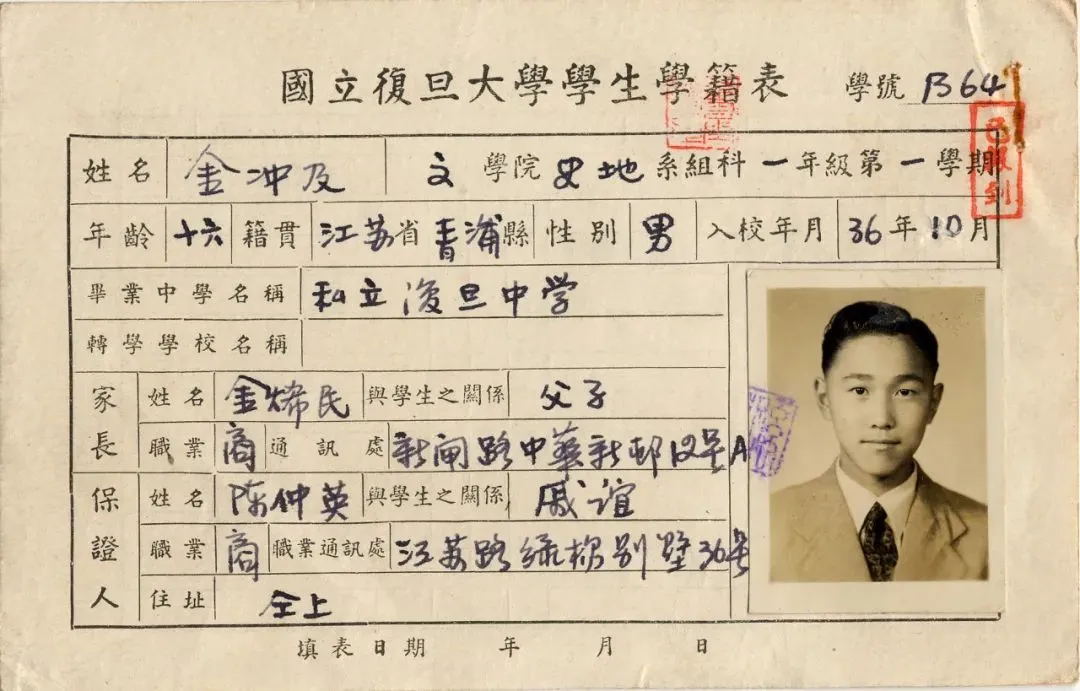 國立復旦大學學生學籍表 學號 B64
姓名 金冲及 文 學院 史地 系組科 一 年級第 一 學期
年齡 十六 籍貫 江苏 省 青浦 縣 性別 男 入校年月 36 年 10 月
畢業中學名稱 私立復旦中学
轉學學校名稱
家長 姓名 金烯民 與學生之關係 父子
職業 商 通訊處 新闸路中華新邨 A
保證人 姓名 陈仲英 與學生之關係 戚谊
職業 商 職業通訊處 江苏路 别墅36号
住址 仝上
填表日期 年 月 日